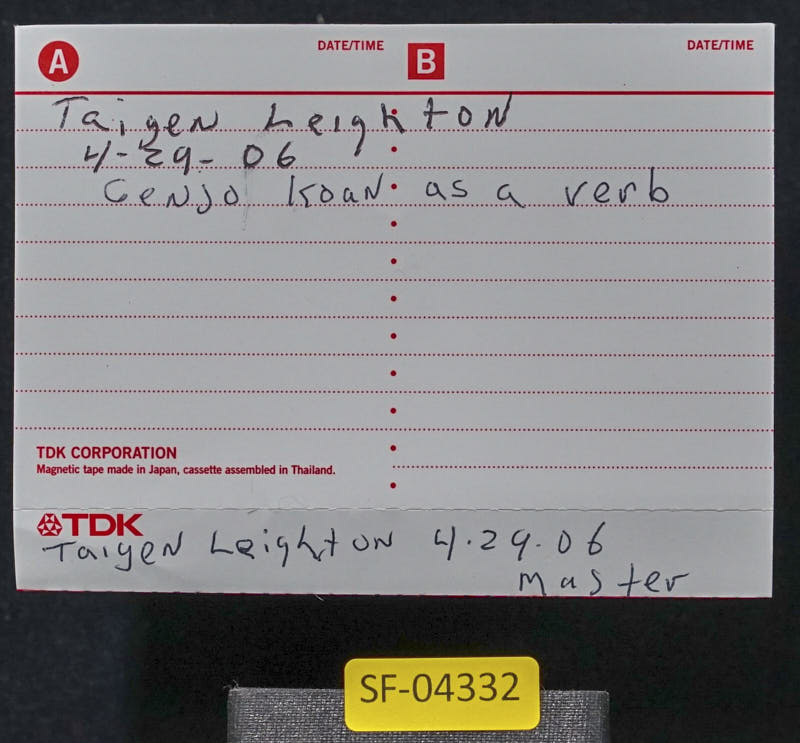 A DATE/TIME B DATE/TIME
Taigen Leighton
4-29-06
Genjo Koan as a verb
TDK CORPORATION
Magnetic tape made in Japan, cassette assembled in Thailand.
TDK
Taigen Leighton 4.29.06
Master
SF-04332